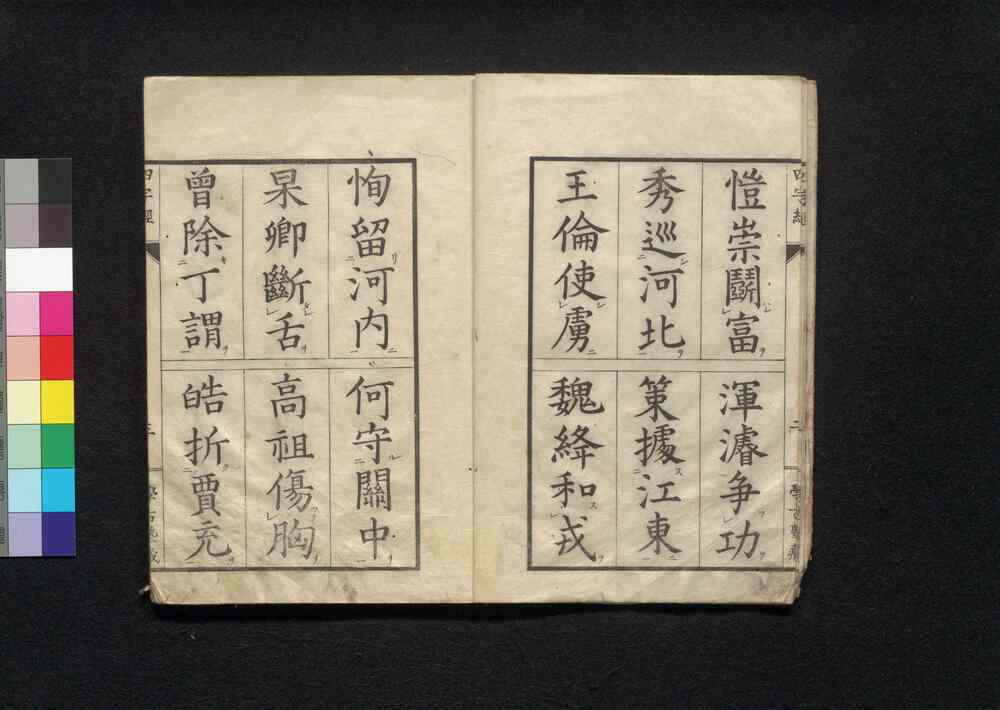 愷崇鬭富
渾濬争功
秀巡河北
策據江東
王倫使虜
魏絳和戎
恂留河内
何守關中
杲卿斷舌
高祖傷胸
曾除丁謂
皓折賈充
四字經
二
四字經
三